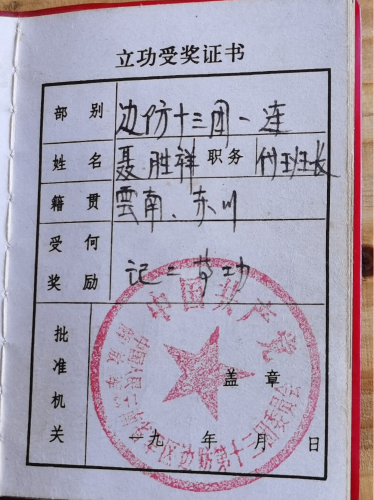 立功受奖证书
部别 边防十三团一连
姓名 聂胜祥 职务 付班长
籍贯 雲南、东川
受何奖励 记二等功
批准机关
中国共产党
盖章
一九 年 月 日